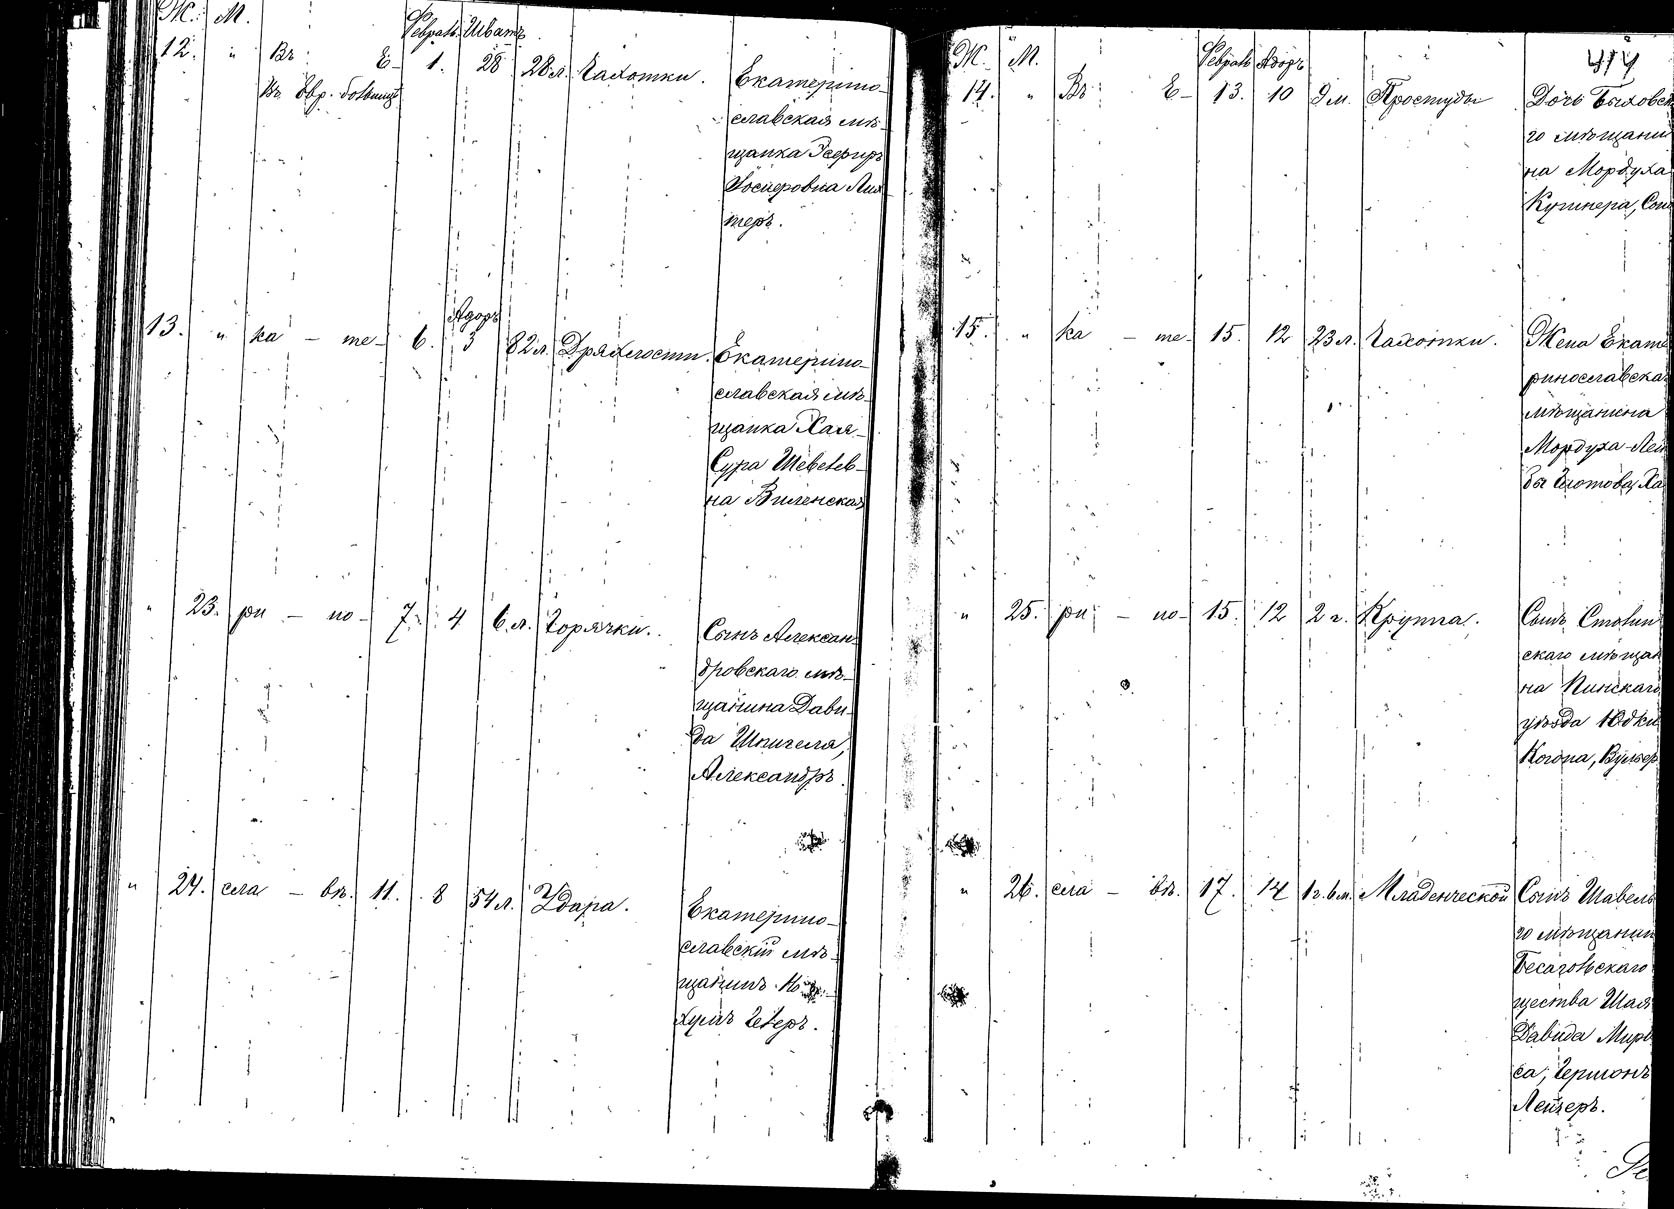 Ж. М. Февраль Шватъ
12. " Въ Е- 1. 28 28 л. Чахотки. Екатерино-
Въ Евр. больницѣ
славская мѣ-
щанка Эсфирь
Іосперовна Лих
теръ.
13. " ка - те- 6. Адоръ 3 82 л. Дряхлости. Екатерино-
славская мѣ-
щанка Хая-
Сура Шевелев-
на Виленская
" 23. ри - но- 7. 4 6 л. Горячки. Сынъ Алексан-
дровскаго мѣ-
щанина Дави-
да Шпигеля,
Александръ.
" 24. сла - вѣ. 11. 8 54 л. Удара. Екатерино-
славскій мѣ-
щанинъ
хумъ Гелеръ.
414
Ж. М. Февраль Адоръ
14. " Въ Е- 13. 10 9 м. Простуды Дочь Быховск
го мѣщани
на Мордуха
Кушнера, Соня
15. " ка - те- 15. 12 23 л. Чахотки. Жена Екате
ринославскаг
мѣщанина
Мордуха-Лей
бы Глотова, Ха
" 25. ри - но- 15. 12 2 г. Круппа. Сынъ Столин
скаго мѣщан
на Пинскаго
уѣзда Юдки
Когона, Вульфъ
" 26. сла - вѣ. 17. 14 1 г. 6 м. Младенческой Сынъ Шавель
го мѣщанин
Бесагольскаго
щества Шая
Давида Мирв
са, Гершонъ
Лейзеръ.